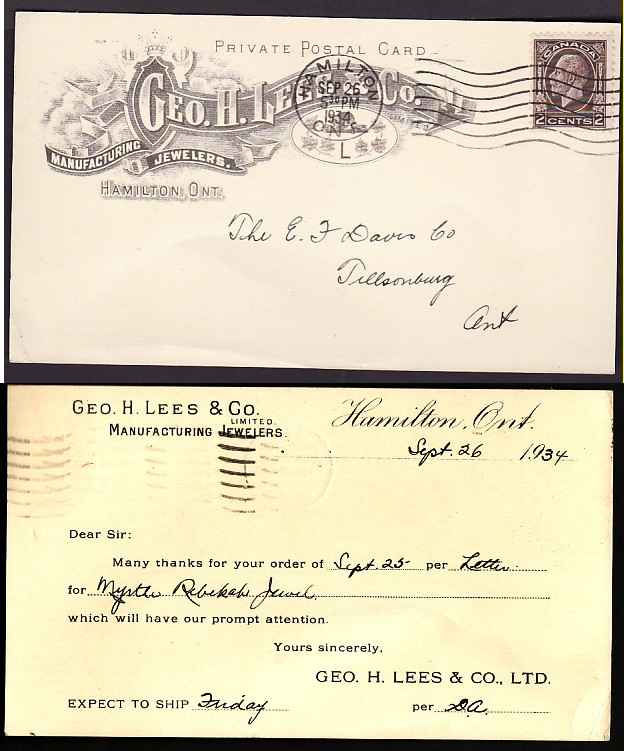 PRIVATE POSTAL CARD
GEO. H. LEES & CO.
MANUFACTURING JEWELERS.
HAMILTON, ONT.
HAMILTON
SEP 26
5 30 PM
1934
ONT.
L
CANADA
2 CENTS 2
The E. F Davis Co
Tillsonburg
Ont
GEO. H. LEES & CO.
LIMITED.
MANUFACTURING JEWELERS.
Hamilton, Ont.
Sept. 26 1934
Dear Sir:
Many thanks for your order of Sept. 25 per Letter
for Myrtle Rebekah Jewel
which will have our prompt attention.
Yours sincerely,
GEO. H. LEES & CO., LTD.
EXPECT TO SHIP Friday per D.A.